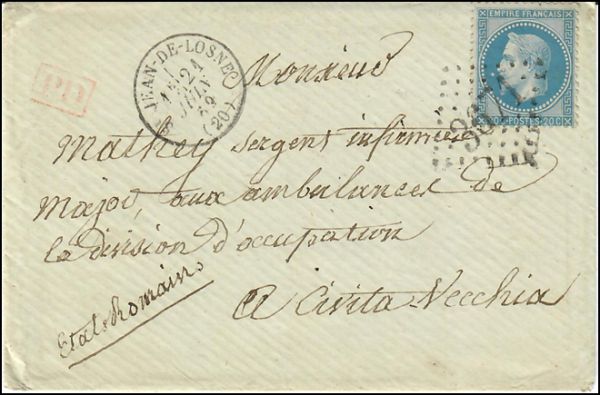 EMPIRE FRANÇAIS
20c POSTES 20c
St JEAN-DE-LOSNE
1E
24
JUIN
69
(20)
PD
Monsieur
Mathey sergent infirmier
Major, aux ambulances de
la division d'occupation
a Civita-Vecchia
Etats Romains